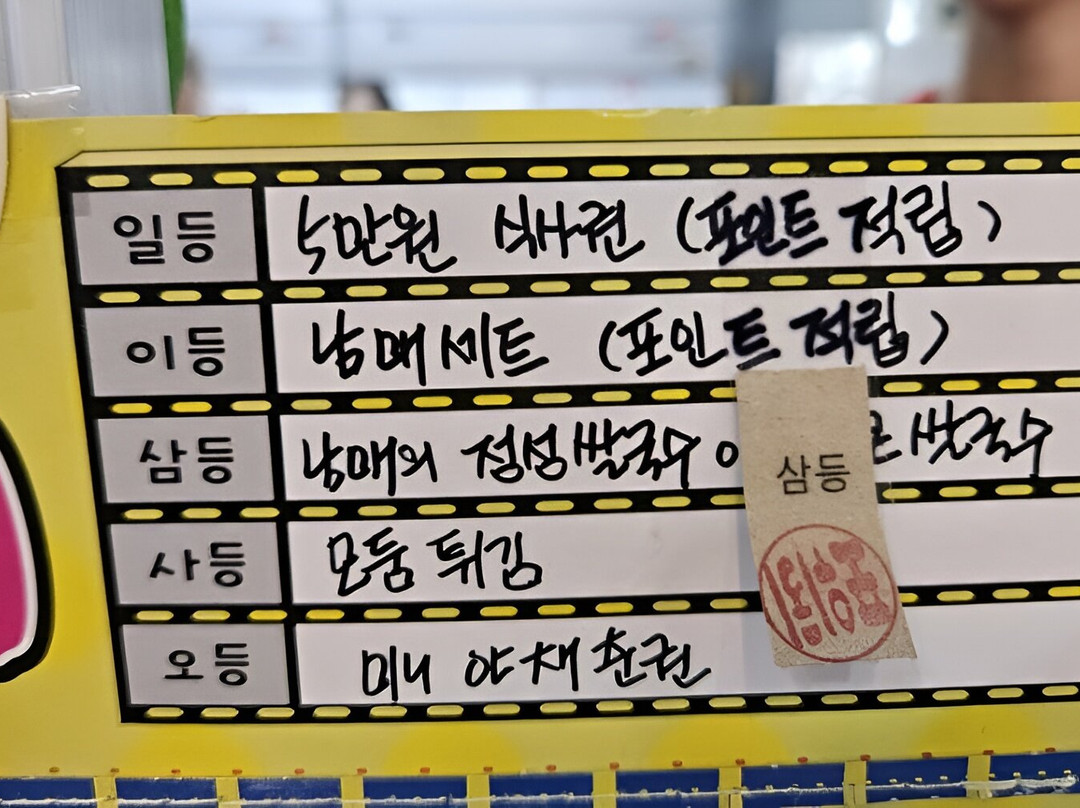 일등 5만원 식사권 (포인트 적립)
이등 남매세트 (포인트 적립)
삼등 남매의 정성쌀국수 쌀국수
삼등
사등 모둠 튀김
오등 미니 야채 춘권